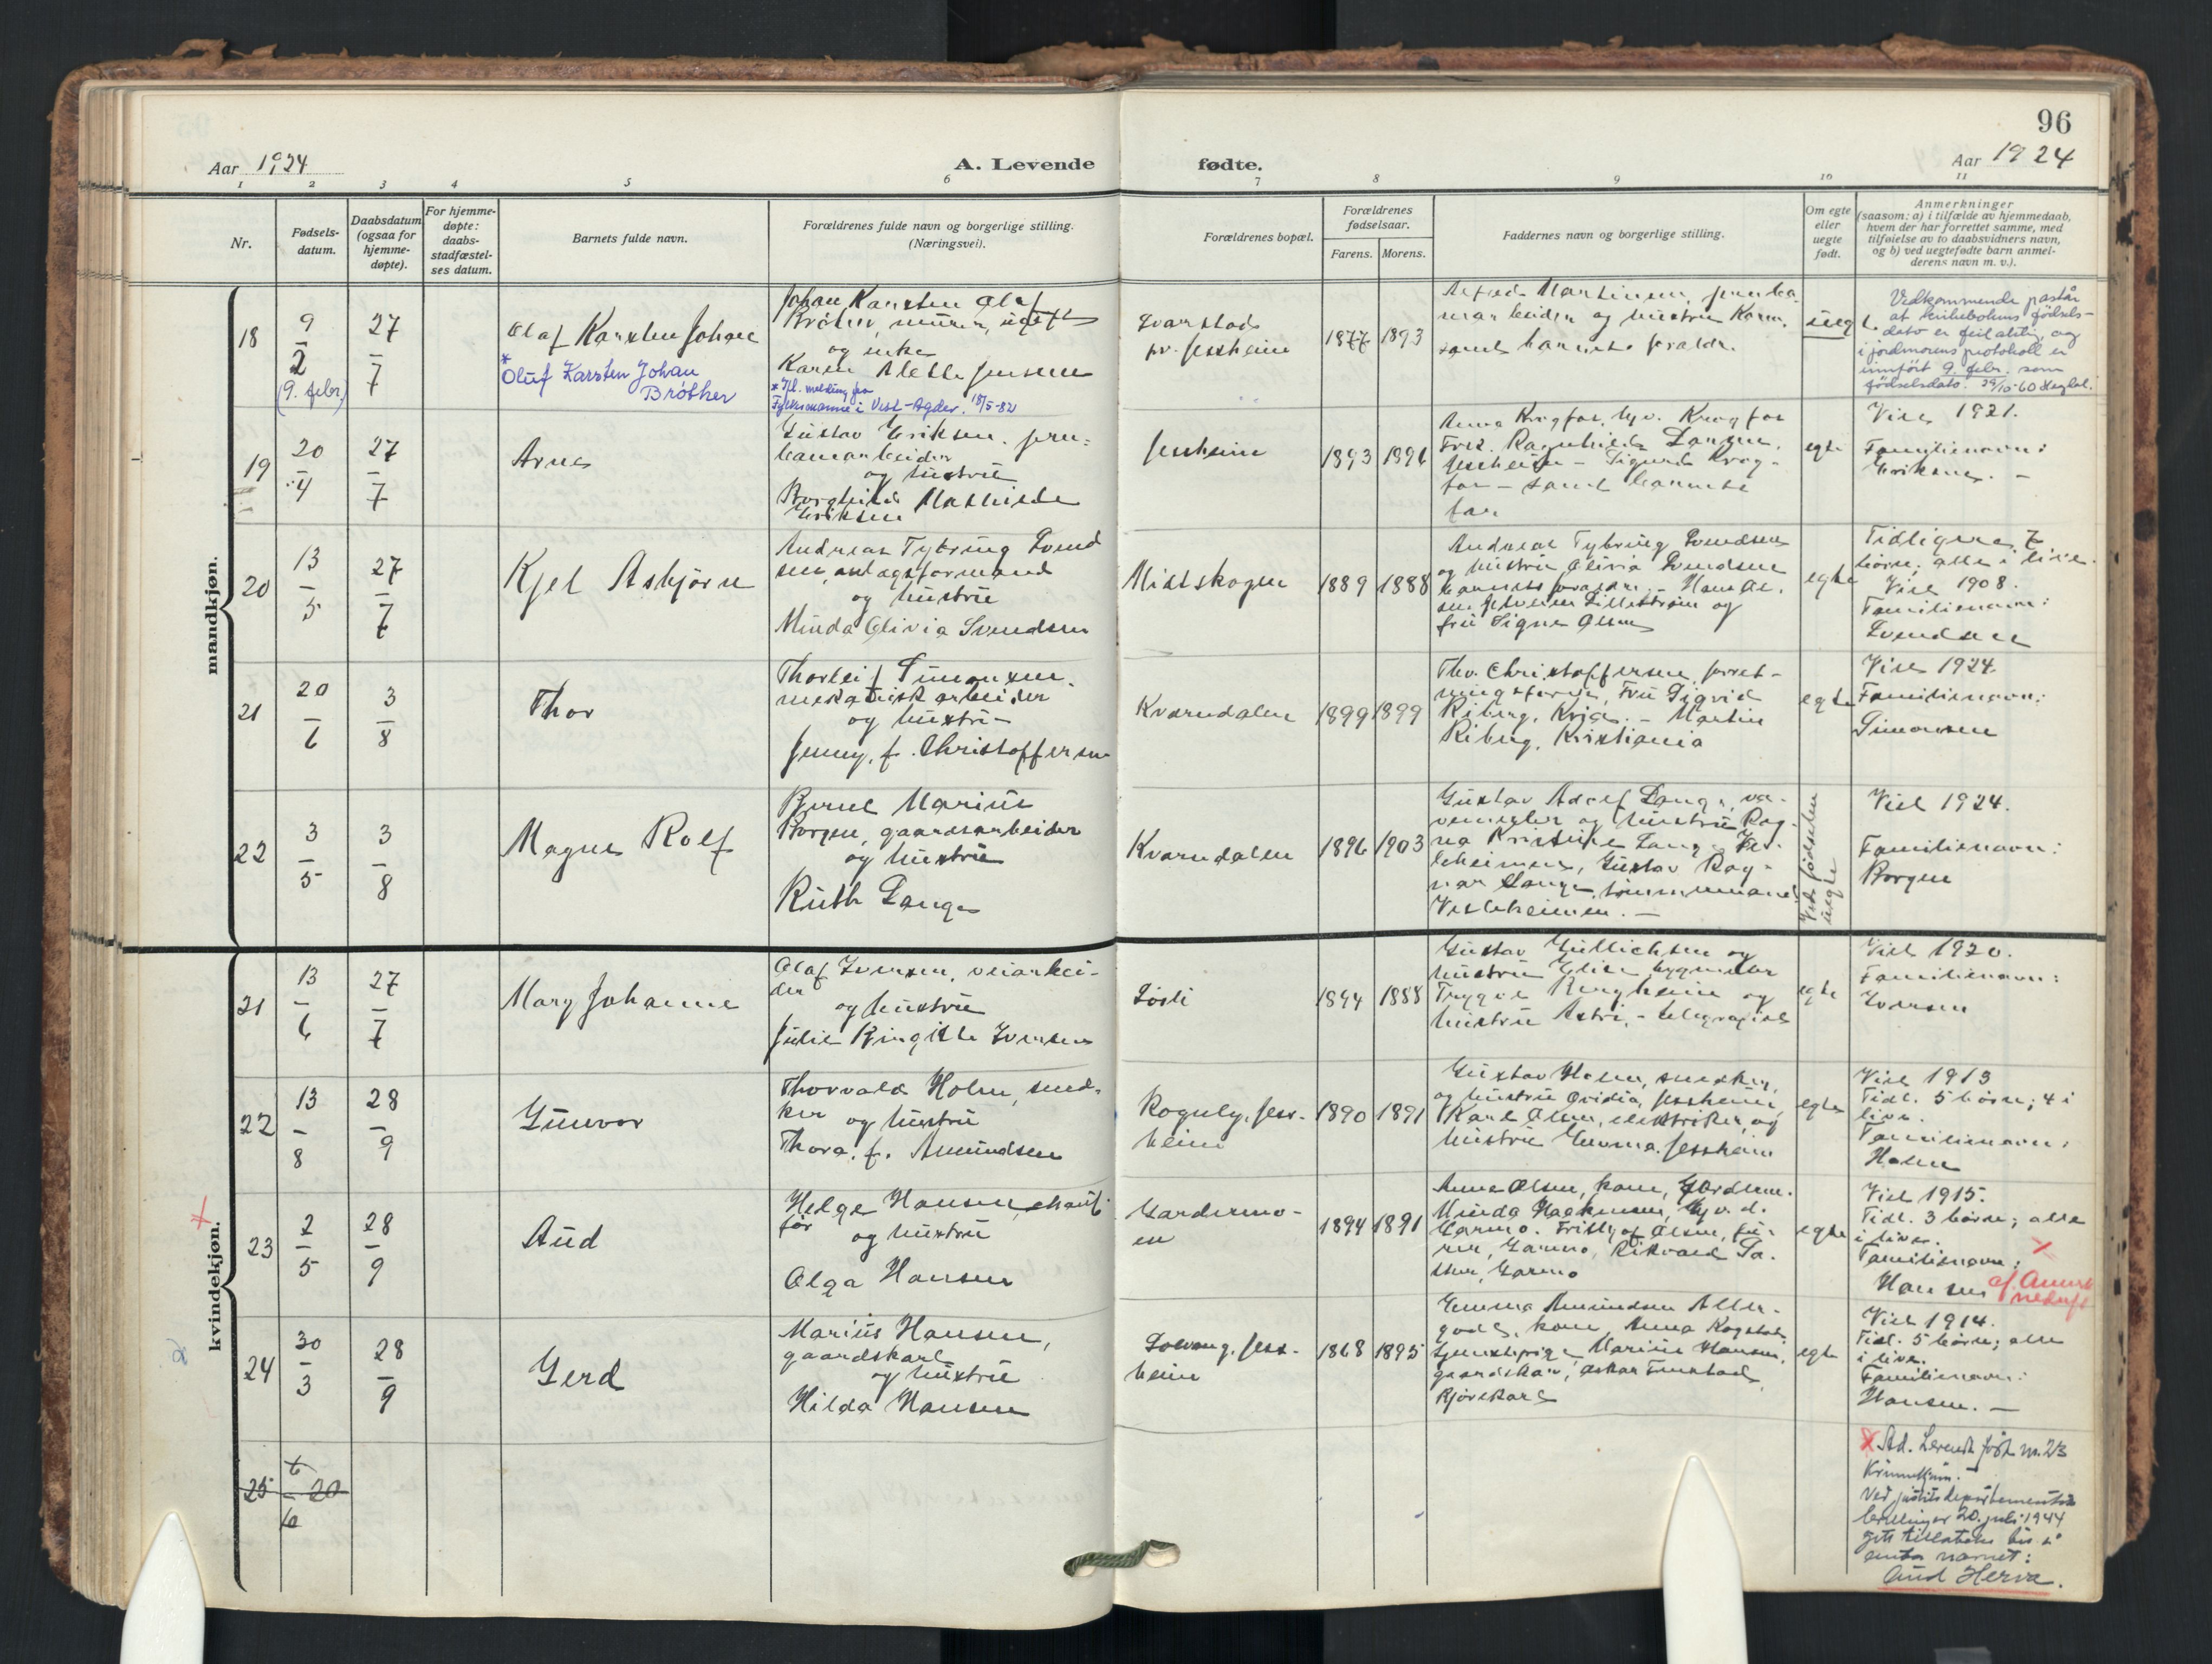 96
Aar 1924
A. Levende
fødte.
Aar 1924
1 2 3 4 5 6 7 8 9 10 11
Nr.
Fødsels-
datum.
Daabsdatum
(ogsaa for
hjemme-
døpte).
For hjemme-
døpte:
daabs-
stadfæstel-
ses datum.
Barnets fulde navn.
Forældrenes fulde navn og borgerlige stilling.
(Næringsvei).
Forældrenes bopæl.
Forældrenes
fødselsaar.
Farens. Morens.
Faddernes navn og borgerlige stilling.
Om egte
eller
uegte
født.
Anmerkninger
(saasom: a) i tilfælde av hjemmedaab,
hvem der har forrettet samme, med
tilføielse av to daabsvidners navn,
og b) ved uegtefødte barn anmel-
derens navn m. v.).
mandkjøn.
18
9
2
(9. febr.)
27
7
Olaf Karsten Johan
* Oluf Karsten Johan
Bróther
Johan Karsten Olaf
Bróther, murer, ugift
og enke
Karen Alette Jensen
* Jfl. melding fra
Fylkesmannen i Vest-Agder. 18/5-82
pr. Jessheim
1877 1893
samt barnets foreldre.
uegt.
Vedkommende påstår
at kirkebokens fødsels-
dato er feilaktig, og
i jordmorens protokoll er
innført 9. febr. som
fødselsdato. 29/10-60
19
20
4
27
7
Arne
Gustav Eriksen, jern-
banearbeider
og hustru
Borghild Mathilde
Eriksen
Jessheim
1893 1896
Anna Krogfos, hv.
Frk. Ragnhild Larsen,
Jessheim - Sigurd Krog-
fos - samt barnets
far
egte
Viet 1921.
Familienavn:
Eriksen. -
20
13
5
27
7
Kjel Asbjørn
Andreas Tybring Svend
sen, anlægsformand
og hustru
Minda Olivia Svendsen
Mistskogen
1889 1888
Andreas Tybring Svendsen
og hustru Olivia Svendsen
barnets forældre - Hans Ol.
sen, Lillestrøm og
fru Signe Olsen
egte
Tidligere 7
børn; alle i live.
Viet 1908.
Familienavn:
Svendsen
21
20
6
3
8
Thor
Thorleif Simonsen.
mekanisk arbeider
og hustru -
Jenny, f. Christoffersen
Kverndalen
1899 1899
Thv. Christoffersen, forret-
ningsfører, Fru Sigrid
Riberg, Krja. - Martin
Riberg, Kristiania
egte
Viet 1924.
Familienavn:
Simonsen
22
3
5
3
8
Magne Rolf
Bernt Marius
Borgen, gaardsarbeider
og hustru
Ruth Lange
Kverndalen
1896 1903
Gustav Adolf Lange, va-
og hustru Rag-
na Kristine Lange, Ves-
leheimen, Gustav Rag-
nar Lange, tømmermand
Vesleheimen. -
Ved fødselen
uegte
Viet 1924.
Familienavn:
Borgen
kvindekjøn.
21
13
6
27
7
Mary Johanne
Olaf Iversen, veiarbei-
der
og hustru
Julie Birgitte Iversen
Løsli
1894 1888
Gustav Gullichsen og
hustru Elise, bygmester
Trygve Bergheim og
hustru Astri, - telegrafist
egte
Viet 1920.
Familienavn:
Iversen
22
13
8
28
9
Gunvor
Thorvald Holm, sned-
ker
og hustru
Thora, f. Amundsen
Rogneby, Jess-
heim
1890 1891
Gustav Holm, snedker,
og hustru Ovidia, Jessheim,
Karl Olsen, elektriker, og
hustru Emma, Jessheim
egte
Viet 1913
Tidl. 5 børn; 4 i
live.
Familienavn:
Holm
23
2
5
28
9
Aud
Helge Hansen, chauf-
før
og hustru
Olga Hansen
Gardermo-
en
1894 1891
Anna Olsen, kone,
Minda Haakensen, hv. d.
Garmo. Frithjof Olsen,
Garmo, Rikvard
Garmo
egte
Viet 1915.
Tidl. 3 børn; alle
i live.
Familienavn:
Hansen
cf. Anm.
nedenf.
24
30
3
28
9
Gerd
Marius Hansen,
gaardskarl
og hustru
Hilda Hansen
Solvang, Jess-
heim
1868 1895
Emma Amundsen Aller-
godt, kone, Anna Rogstad,
tjenestepige, Marius Hansen,
gaardskar, Oskar Furustad,
Kjørekarl
egte
Viet 1914.
Tidl. 5 børn; alle
i live.
Familienavn:
Hansen. -
25
6
6
20
X Ad. Levende født nr. 23
Kvinnekjøn. -
Ved justitsdepartementets
bevillinger 20. juli 1944
gitt tillatelse til å
anta navnet:
Aud Herva.